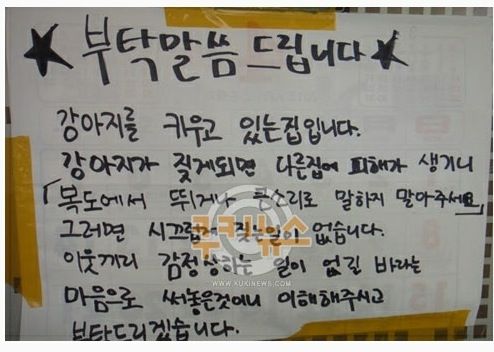 ★부탁말씀 드립니다★
강아지를 키우고 있는집입니다.
강아지가 짖게되면 다른집에 피해가 생기니
「복도에서 뛰거나 큰소리로 말하지 말아주세요」
그러면 시끄럽게 짖는일이 없습니다.
이웃끼리 감정상하는 일이 없길 바라는
마음으로 써놓은것이니 이해해주시고
부탁드리겠습니다.
쿠키뉴스
WWW.KUKINEWS.COM